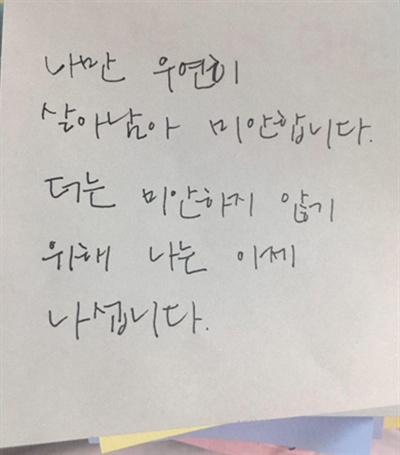 나만 우연히
살아남아 미안합니다.
더는 미안하지 않기
위해 나는 이제
나섭니다.